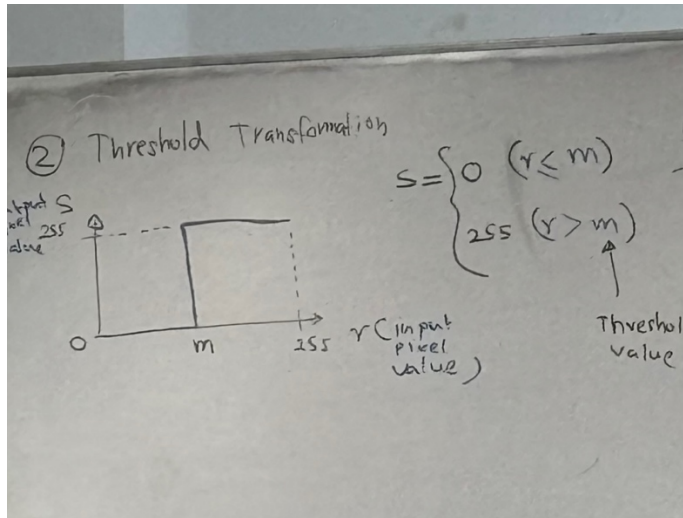 ② Threshold Transformation
S = { 0 (r ≤ m)
255 (r > m)
Threshol
value
S
255
0
m
255
r (input
pixel
value)